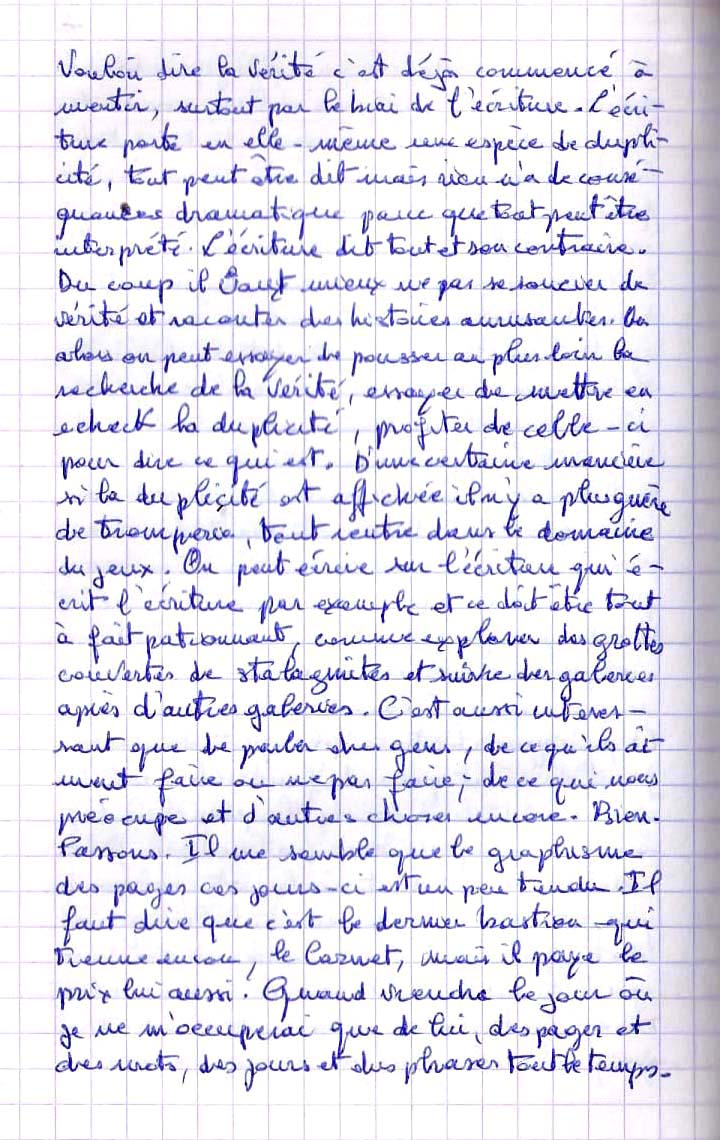 Vouloir dire la vérité c'est déjà commencé à
mentir, surtout par le biai de l'écriture. L'écri-
ture porte en elle-même une espèce de dupli-
cité, tout peut être dit mais rien n'a de consé-
quences dramatique parce que tout peut être
interprété. L'écriture dit tout et son contraire.
Du coup il vaut mieux ne pas se soucier de
vérité et raconter des histoires amusantes. Ou
alors on peut essayer de pousser au plus loin la
recherche de la vérité, essayer de mettre en
echeck la duplicité, profiter de celle-ci
pour dire ce qui est. D'une certaine manière
si la duplicité est affichée il n'y a plus guère
de tromperie, tout rentre dans le domaine
du jeux. On peut écrire sur l'écriture qui é-
crit l'écriture par exemple et ce doit être tout
à fait passionnant, comme explorer des grottes
couvertes de stalagmites et suivre des galeries
après d'autres galeries. C'est aussi intéres-
sant que de parler des gens, de ce qu'ils ai-
ment faire ou ne pas faire, de ce qui nous
préocupe et d'autres choses encore. Bien.
Passons. Il me semble que le graphisme
des pages ces jours-ci est un peu tendu. Il
faut dire que c'est le dernier bastion qui
tienne encore, le Carnet, mais il paye le
prix lui aussi. Quand viendra le jour où
je ne m'occuperai que de lui, des pages et
des mots, des jours et des phrases tout le temps.